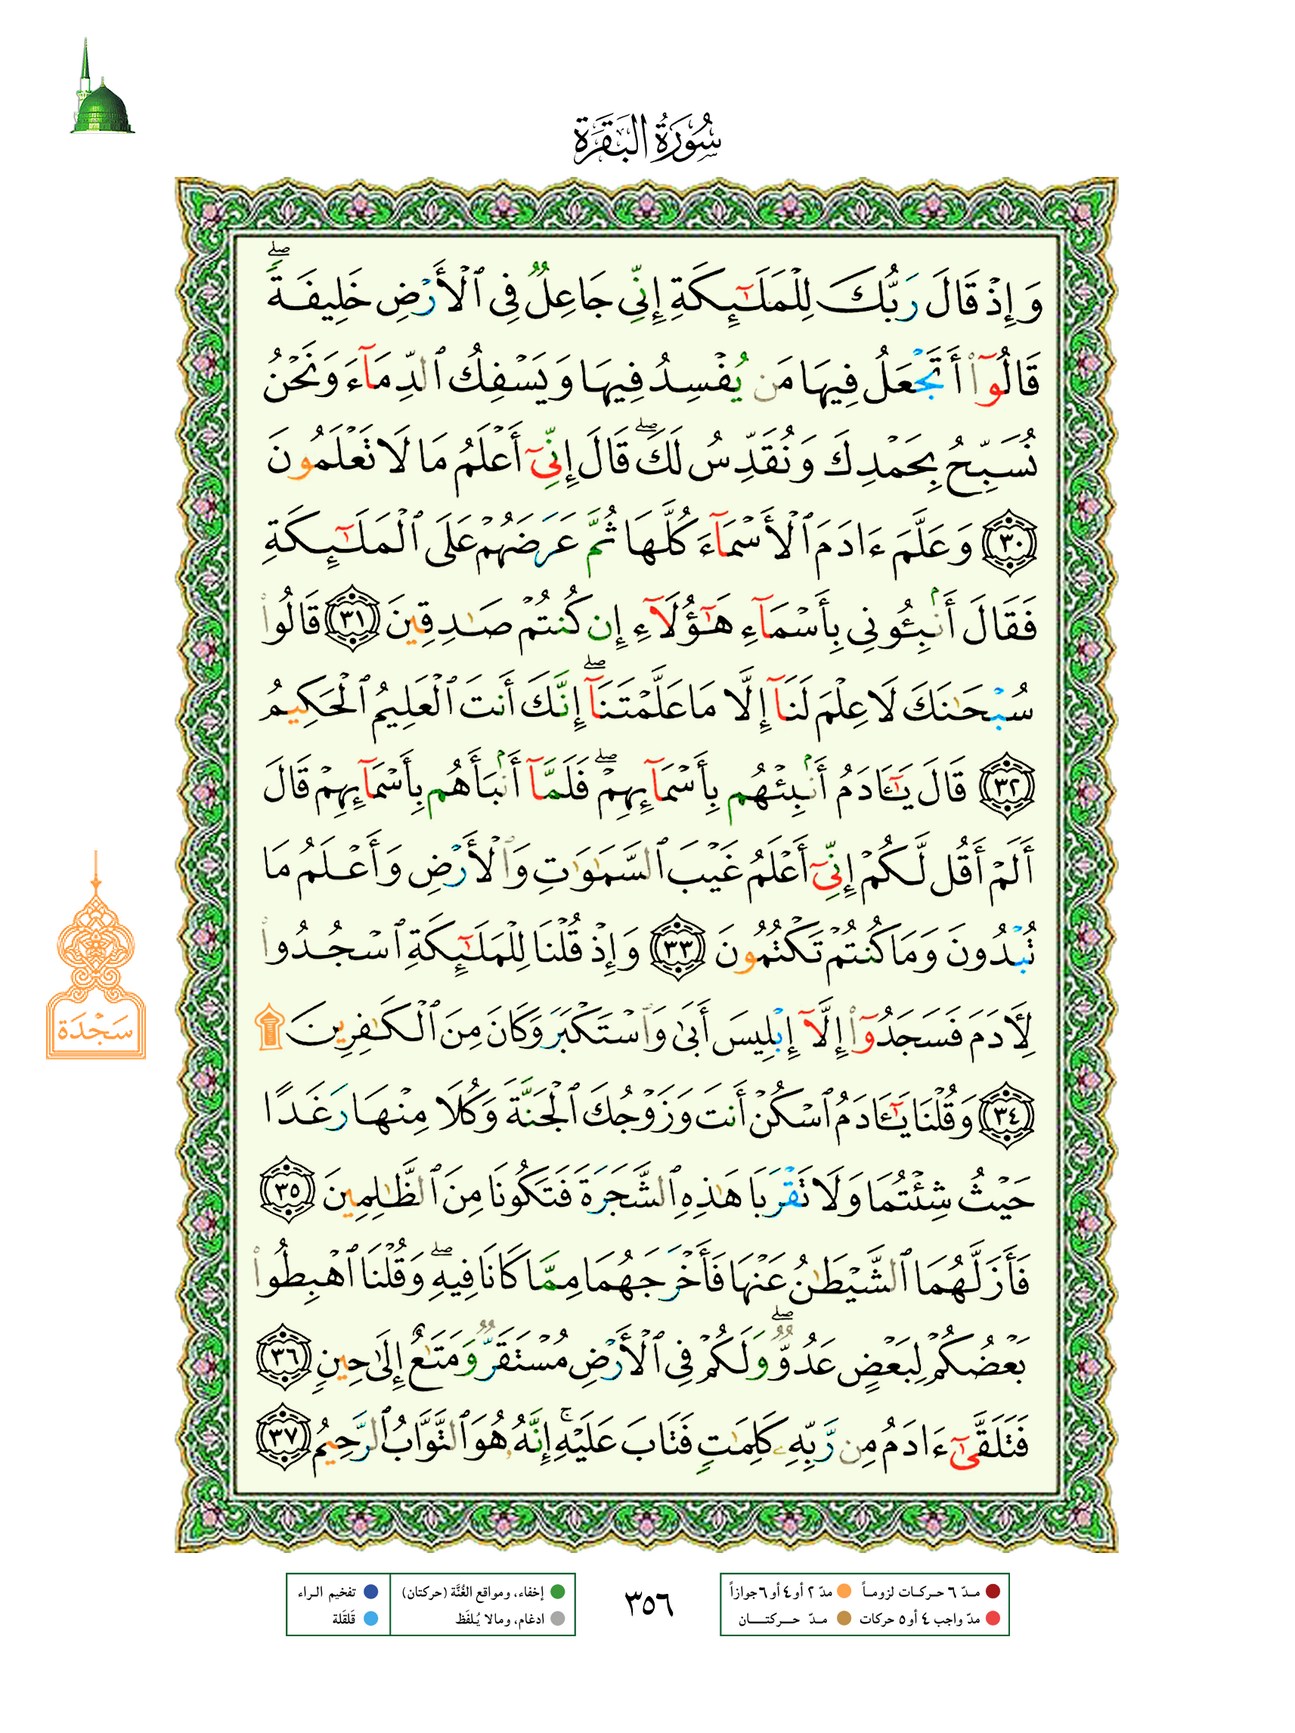 سُورَةُ البَقَرَة
وَإِذْ قَالَ رَبُّكَ لِلْمَلَـٰٓئِكَةِ إِنِّى جَاعِلٌ فِى ٱلْأَرْضِ خَلِيفَةً ۖ
قَالُوٓا۟ أَتَجْعَلُ فِيهَا مَن يُفْسِدُ فِيهَا وَيَسْفِكُ ٱلدِّمَآءَ وَنَحْنُ
نُسَبِّحُ بِحَمْدِكَ وَنُقَدِّسُ لَكَ ۖ قَالَ إِنِّىٓ أَعْلَمُ مَا لَا تَعْلَمُونَ
٣٠ وَعَلَّمَ ءَادَمَ ٱلْأَسْمَآءَ كُلَّهَا ثُمَّ عَرَضَهُمْ عَلَى ٱلْمَلَـٰٓئِكَةِ
فَقَالَ أَنۢبِـُٔونِى بِأَسْمَآءِ هَـٰٓؤُلَآءِ إِن كُنتُمْ صَـٰدِقِينَ ٣١ قَالُوا۟
سُبْحَـٰنَكَ لَا عِلْمَ لَنَآ إِلَّا مَا عَلَّمْتَنَآ ۖ إِنَّكَ أَنتَ ٱلْعَلِيمُ ٱلْحَكِيمُ
٣٢ قَالَ يَـٰٓـَٔادَمُ أَنۢبِئْهُم بِأَسْمَآئِهِمْ ۖ فَلَمَّآ أَنۢبَأَهُم بِأَسْمَآئِهِمْ قَالَ
أَلَمْ أَقُل لَّكُمْ إِنِّىٓ أَعْلَمُ غَيْبَ ٱلسَّمَـٰوَٰتِ وَٱلْأَرْضِ وَأَعْلَمُ مَا
تُبْدُونَ وَمَا كُنتُمْ تَكْتُمُونَ ٣٣ وَإِذْ قُلْنَا لِلْمَلَـٰٓئِكَةِ ٱسْجُدُوا۟
لِـَٔادَمَ فَسَجَدُوٓا۟ إِلَّآ إِبْلِيسَ أَبَىٰ وَٱسْتَكْبَرَ وَكَانَ مِنَ ٱلْكَـٰفِرِينَ ۩
٣٤ وَقُلْنَا يَـٰٓـَٔادَمُ ٱسْكُنْ أَنتَ وَزَوْجُكَ ٱلْجَنَّةَ وَكُلَا مِنْهَا رَغَدًا
حَيْثُ شِئْتُمَا وَلَا تَقْرَبَا هَـٰذِهِ ٱلشَّجَرَةَ فَتَكُونَا مِنَ ٱلظَّـٰلِمِينَ ٣٥
فَأَزَلَّهُمَا ٱلشَّيْطَـٰنُ عَنْهَا فَأَخْرَجَهُمَا مِمَّا كَانَا فِيهِ ۖ وَقُلْنَا ٱهْبِطُوا۟
بَعْضُكُمْ لِبَعْضٍ عَدُوٌّ ۖ وَلَكُمْ فِى ٱلْأَرْضِ مُسْتَقَرٌّ وَمَتَـٰعٌ إِلَىٰ حِينٍ ٣٦
فَتَلَقَّىٰٓ ءَادَمُ مِن رَّبِّهِۦ كَلِمَـٰتٍ فَتَابَ عَلَيْهِ ۚ إِنَّهُۥ هُوَ ٱلتَّوَّابُ ٱلرَّحِيمُ ٣٧
سَجْدَة
مدّ ٦ حركات لزوماً مدّ ٢ أو ٤ أو ٦ جوازاً
مدّ واجب ٤ أو ٥ حركات مدّ حركتان
٣٥٦
إخفاء، ومواقع الغُنَّة (حركتان) تفخيم الراء
ادغام، ومالا يُلفَظ قلقَلة